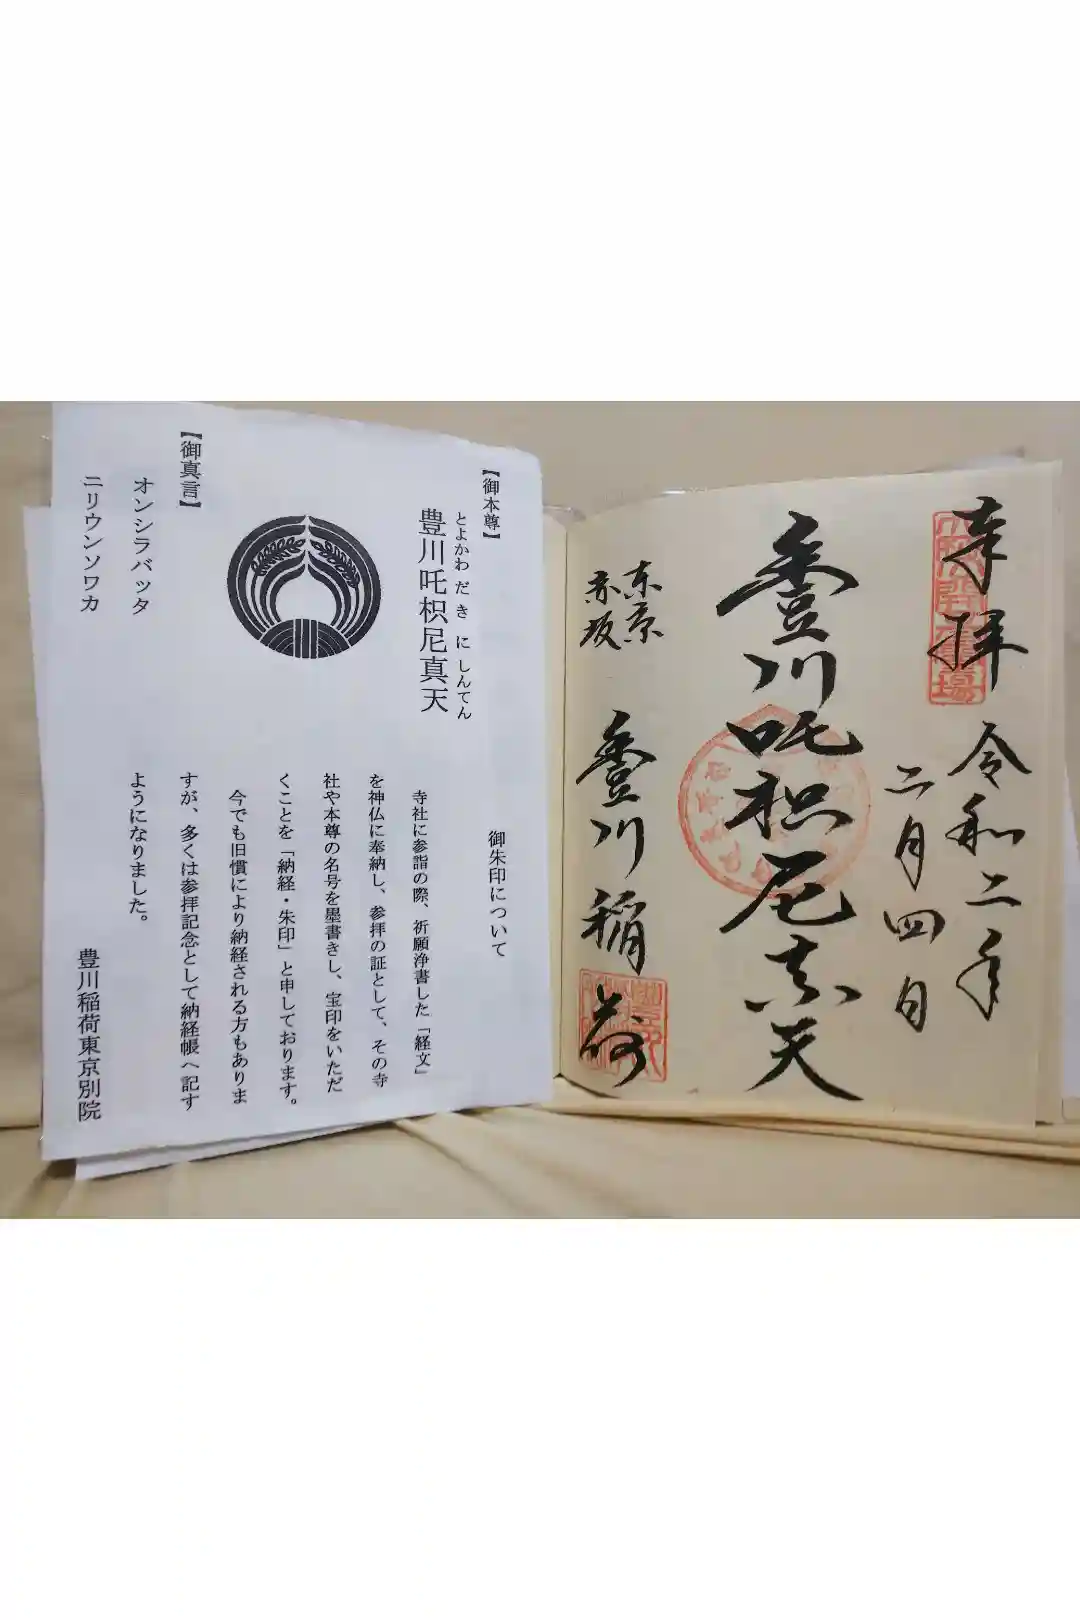 【御本尊】
とよかわ だ き に しんてん
豊川吒枳尼真天
【御真言】
オンシラバッタ
ニリウンソワカ
御朱印について
寺社に参詣の際、祈願浄書した「経文」
を神仏に奉納し、参拝の証として、その寺
社や本尊の名号を墨書きし、宝印をいただ
くことを「納経・朱印」と申しております。
今でも旧慣により納経される方もありま
すが、多くは参拝記念として納経帳へ記す
ようになりました。
豊川稲荷東京別院
奉拝
令和二年
二月四日
豊川吒枳尼真天
東京
赤坂
豊川稲荷